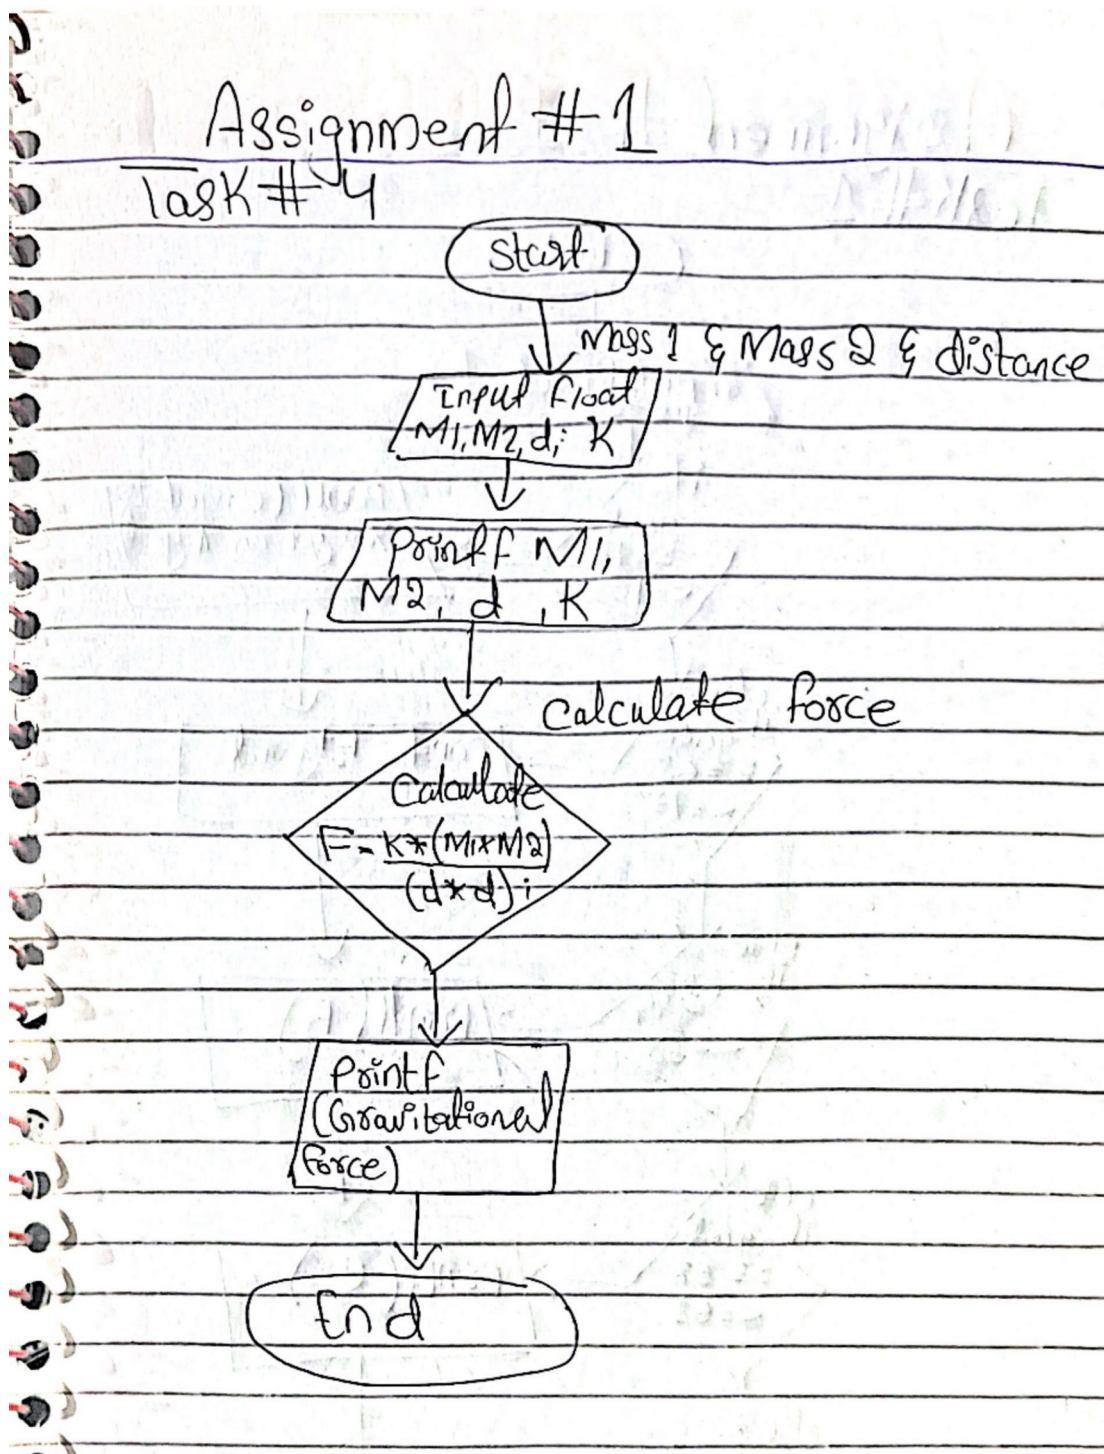 Assignment # 1
Task # 4
Start
Mass 1 & Mass 2 & distance
Input float
M1, M2, d; K
Printf M1,
M2, d , K
Calculate force
Calculate
F = K*(M1*M2)
(d*d);
Printf
(Gravitational
force)
End